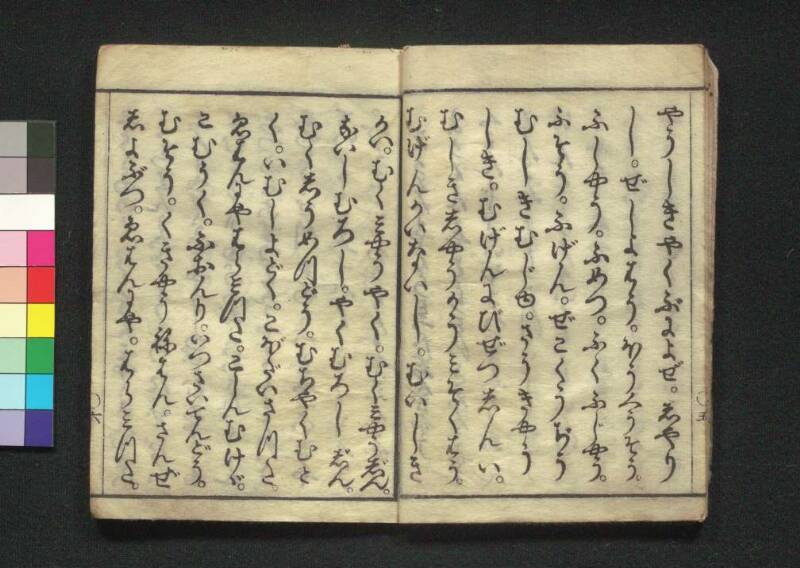 やうしきやくぶによぜ。しやり
し。ぜしよはう。くうさう。
ふしやう。ふめつ。ふくふじやう。
ふぞう。ふげん。ぜこくうぢう
むしきむじゆ。さうきやう
しき。むげんにびぜつしんい。
むしきしやうかうみそくはう。
むげんかいないし。むいしき
〇五
かい。むくみやうやく。むくみやうじん。
ないしむろし。やくむろしじん。
むくしうめつどう。むちやくむと
く。いむしよどく。こぼだいさつた。
ゑはんにやはらみつた。こしんむけげ。
こむうく。ふおんり。いつさいてんどう。
むさう。くきやうねはん。さんぜ
しよぶつ。ゑはんにや。はらみつた。
〇六